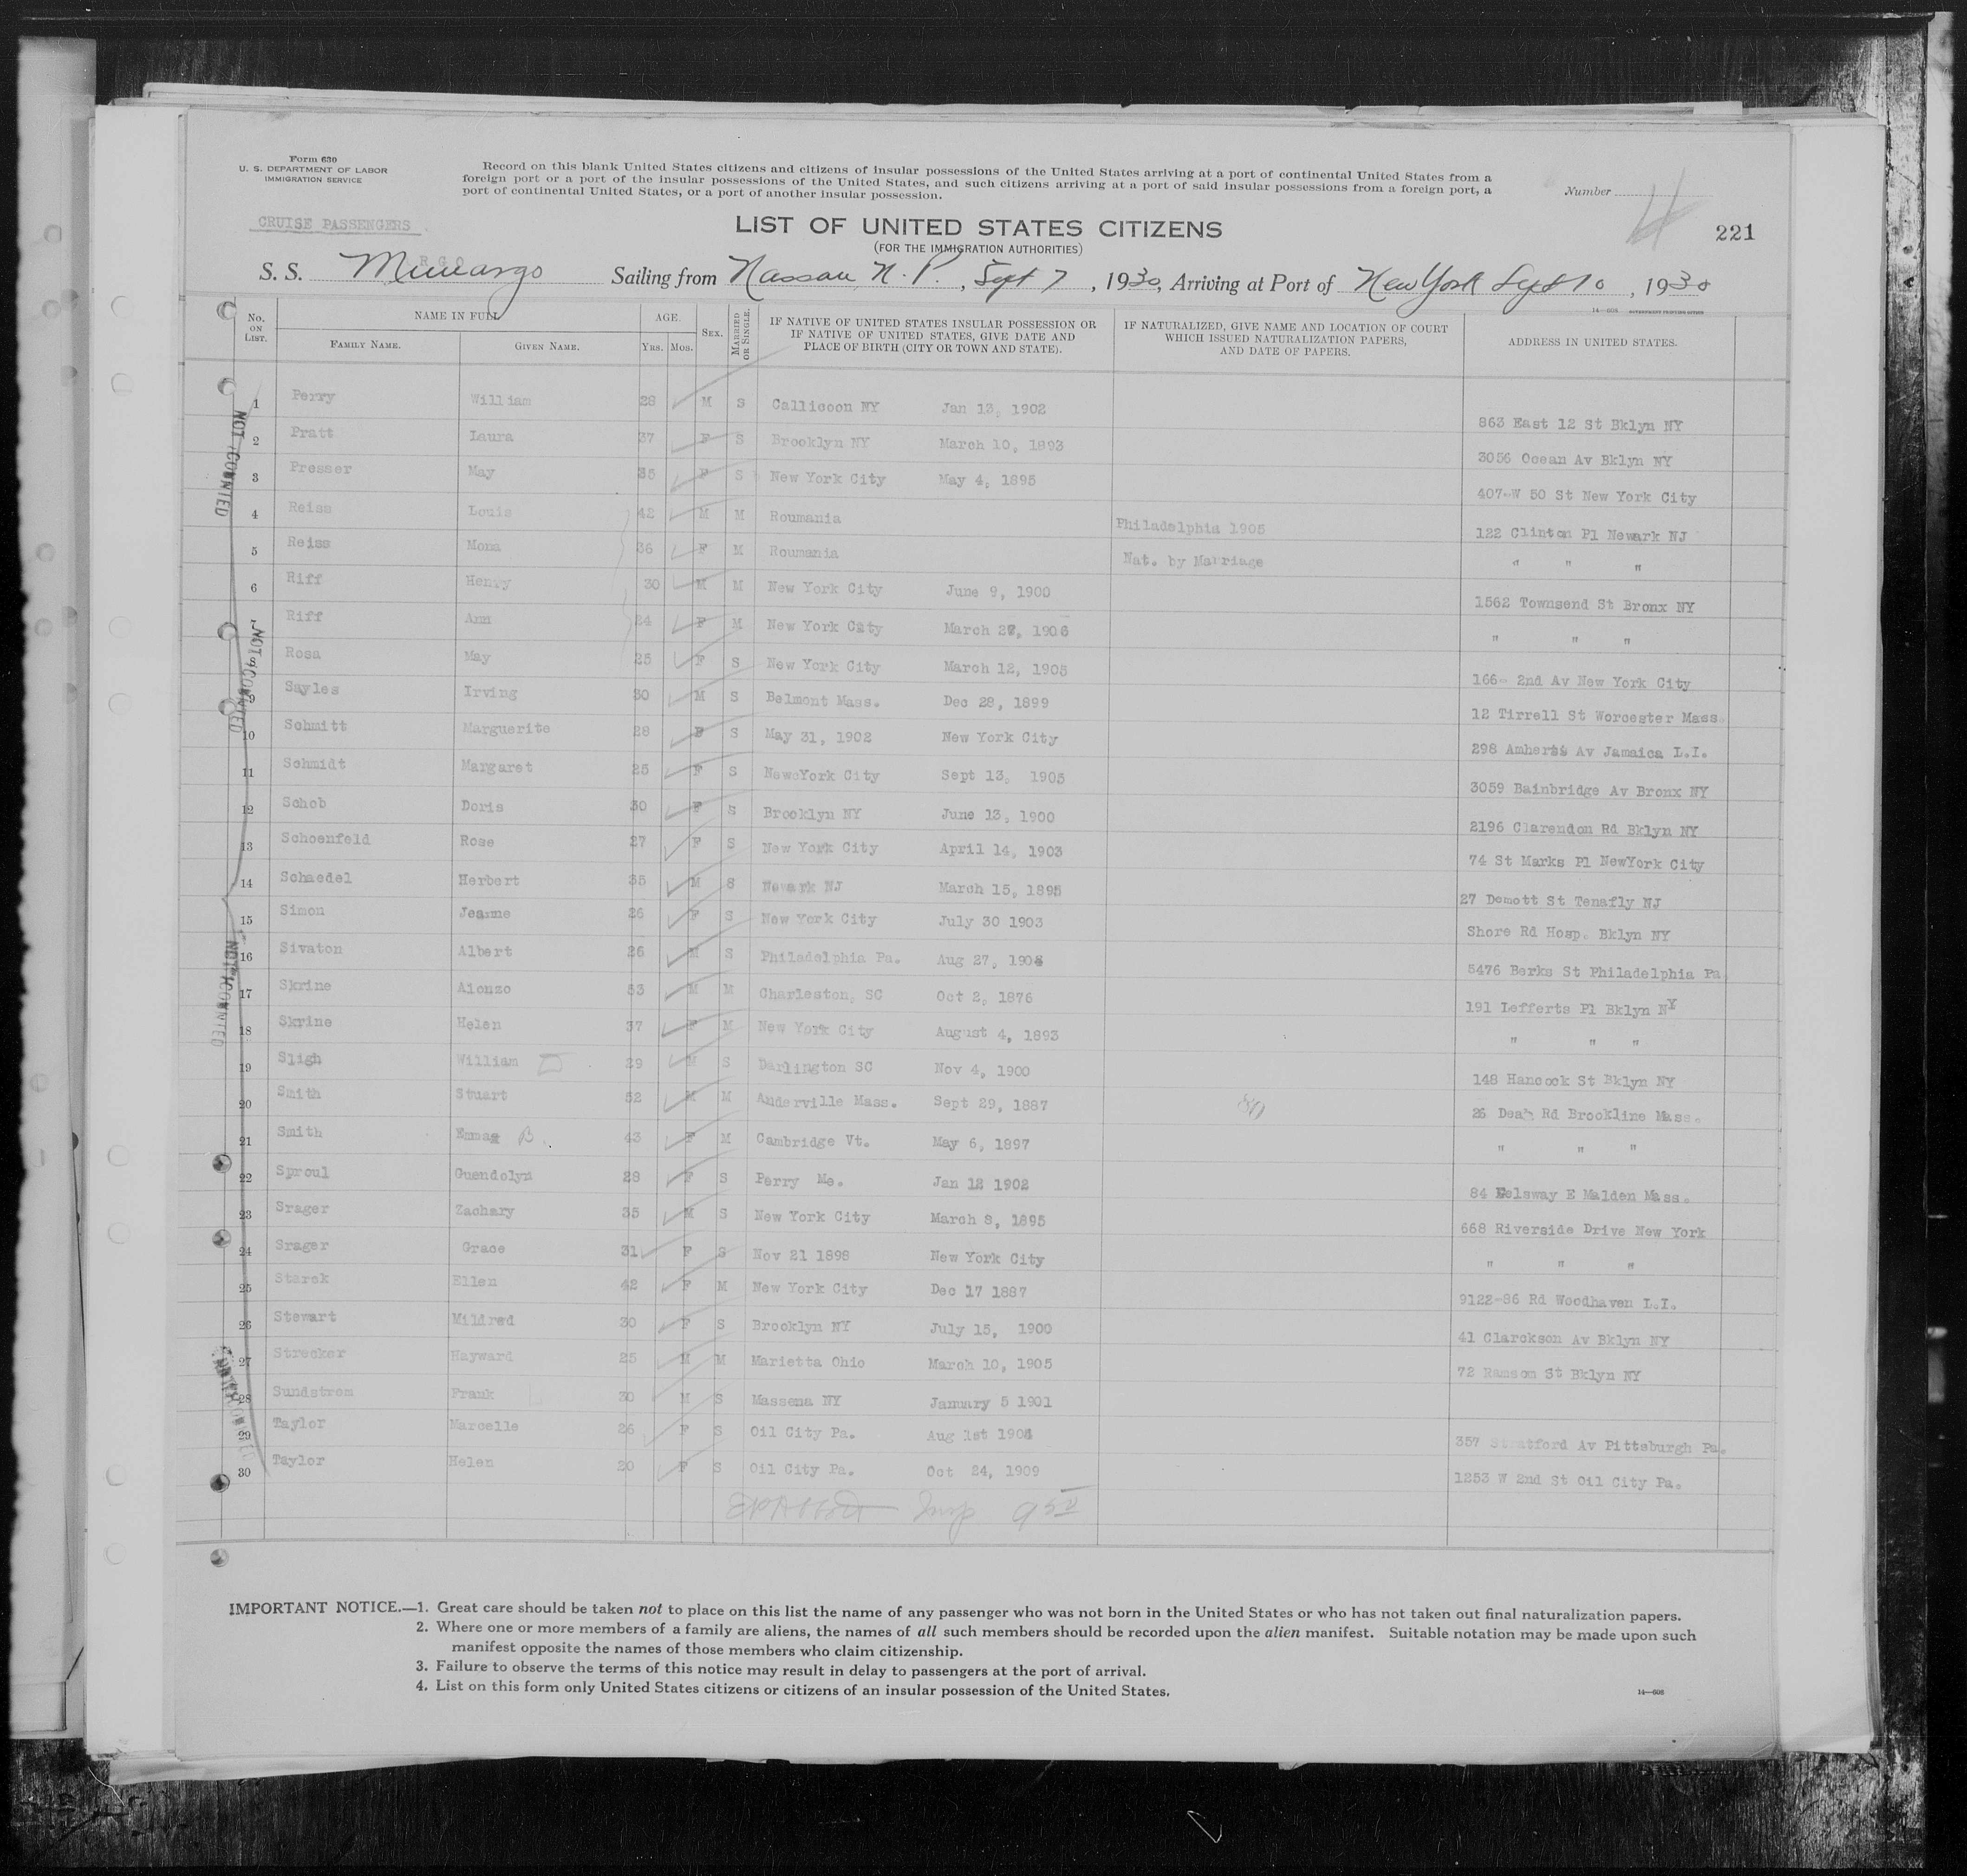 Form 630
U. S. DEPARTMENT OF LABOR
IMMIGRATION SERVICE
Record on this blank United States citizens and citizens of insular possessions of the United States arriving at a port of continental United States from a
foreign port or a port of the insular possessions of the United States, and such citizens arriving at a port of said insular possessions from a foreign port, a
port of continental United States, or a port of another insular possession.
Number
221
CRUISE PASSENGERS
LIST OF UNITED STATES CITIZENS
(FOR THE IMMIGRATION AUTHORITIES)
ARGO
S. S. Munargo Sailing from Nassau N. P., Sept 7, 1930, Arriving at Port of New York Sept 10, 1930
14—608 GOVERNMENT PRINTING OFFICE
No. ON LIST. NAME IN FULL FAMILY NAME. GIVEN NAME. AGE. YRS. MOS. SEX. MARRIED OR SINGLE. IF NATIVE OF UNITED STATES INSULAR POSSESSION OR IF NATIVE OF UNITED STATES, GIVE DATE AND PLACE OF BIRTH (CITY OR TOWN AND STATE). IF NATURALIZED, GIVE NAME AND LOCATION OF COURT WHICH ISSUED NATURALIZATION PAPERS, AND DATE OF PAPERS. ADDRESS IN UNITED STATES.
1 Perry William 28 M S Callicoon NY Jan 13, 1902 863 East 12 St Bklyn NY
2 Pratt Laura 37 F S Brooklyn NY March 10, 1893 3056 Ocean Av Bklyn NY
3 Prosser May 35 F S New York City May 4, 1895 407-W 50 St New York City
4 Reiss Louis 42 M M Roumania Philadelphia 1905 122 Clinton Pl Newark NJ
5 Reiss Mona 36 F M Roumania Nat. by Marriage " " "
6 Riff Henry 30 M M New York City June 9, 1900 1562 Townsend St Bronx NY
7 Riff Ann 24 F M New York City March 27, 1906 " " "
8 Rosa May 25 F S New York City March 12, 1905 166- 2nd Av New York City
9 Sayles Irving 30 M S Belmont Mass. Dec 28, 1899 12 Tirrell St Worcester Mass.
10 Schmitt Marguerite 28 F S May 31, 1902 New York City 298 Amherst Av Jamaica L.I.
11 Schmidt Margaret 25 F S NewoYork City Sept 13, 1905 3059 Bainbridge Av Bronx NY
12 Schob Doris 30 F S Brooklyn NY June 13, 1900 2196 Clarendon Rd Bklyn NY
13 Schoenfeld Rose 27 F S New York City April 14, 1903 74 St Marks Pl NewYork City
14 Schaedel Herbert 35 M S Newark NJ March 15, 1895 27 Demott St Tenafly NJ
15 Simon Jeanne 26 F S New York City July 30 1903 Shore Rd Hosp. Bklyn NY
16 Sivaton Albert 26 M S Philadelphia Pa. Aug 27, 1904 5476 Berks St Philadelphia Pa
17 Skrine Alonzo 53 M M Charleston, SC Oct 2, 1876 191 Lefferts Pl Bklyn NY
18 Skrine Helen 37 F M New York City August 4, 1893 " " "
19 Sligh William D 29 M S Darlington SC Nov 4, 1900 148 Hancock St Bklyn NY
20 Smith Stuart 52 M M Anderville Mass. Sept 29, 1887 26 Dean Rd Brookline Mass.
21 Smith Emma B. 43 F M Cambridge Vt. May 6, 1897 " " "
22 Sproul Guendolyn 28 F S Perry Me. Jan 12 1902 84 Welsway E Malden Mass.
23 Srager Zachary 35 M S New York City March 8, 1895 668 Riverside Drive New York
24 Srager Grace 31 F S Nov 21 1898 New York City " " "
25 Starck Ellen 42 F M New York City Dec 17 1887 9122-86 Rd Woodhaven L.I.
26 Stewart Mildred 30 F S Brooklyn NY July 15, 1900 41 Clarckson Av Bklyn NY
27 Strecker Hayward 25 M M Marietta Ohio March 10, 1905 72 Ransom St Bklyn NY
28 Sundstrom Frank 30 M S Massena NY January 5 1901
29 Taylor Marcelle 26 F S Oil City Pa. Aug 1st 1904 357 Stratford Av Pittsburgh Pa.
30 Taylor Helen 20 F S Oil City Pa. Oct 24, 1909 1253 W 2nd St Oil City Pa.
NOT COUNTED
NOT COUNTED
NOT COUNTED
Insp
IMPORTANT NOTICE.—1. Great care should be taken not to place on this list the name of any passenger who was not born in the United States or who has not taken out final naturalization papers.
2. Where one or more members of a family are aliens, the names of all such members should be recorded upon the alien manifest. Suitable notation may be made upon such
manifest opposite the names of those members who claim citizenship.
3. Failure to observe the terms of this notice may result in delay to passengers at the port of arrival.
4. List on this form only United States citizens or citizens of an insular possession of the United States.
14—608